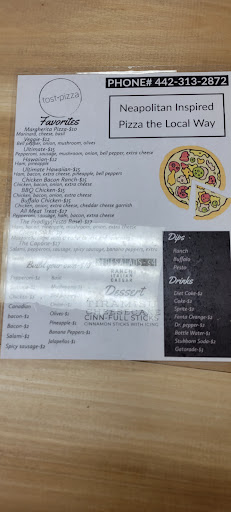 tost-pizza
PHONE# 442-313-2872
Neapolitan Inspired
Pizza the Local Way
Favorites
Margherita Pizza-$10
Marinara, cheese, basil
Veggie-$12
Bell pepper, onion, mushroom, olives
Ultimate-$15
Pepperoni, sausage, mushroom, onion, bell pepper, extra cheese
Hawaiian-$12
Ham, pineapple
Ultimate Hawaiian-$15
Ham, bacon, extra cheese, pineapple, bell peppers
Chicken Bacon Ranch-$15
Chicken, bacon, onion, extra cheese
BBQ Chicken-$15
Chicken, bacon, onion, extra cheese
Buffalo Chicken-$15
Chicken, onion, extra cheese, cheddar cheese garnish
All Meat Treat-$17
Pepperoni, sausage, ham, bacon, extra cheese
Build your
Pepperoni-$1
Canadian
bacon-$1
Bacon-$1
Salami-$1
Spicy sausage-$1
Basil
Olive-$1
Pineapple-$1
Banana Peppers-$1
Jalapeños-$1
RANCH
ITALIAN
CAESAR
Dessert
CINN-FULL STICKS
CINNAMON STICKS WITH ICING
Dips
Ranch
Buffalo
Pesto
Drinks
Diet Coke-$1
Coke-$1
Sprite-$1
Fanta Orange-$1
Dr. pepper-$1
Bottle Water-$1
Stubborn Soda-$2
Gatorade-$1